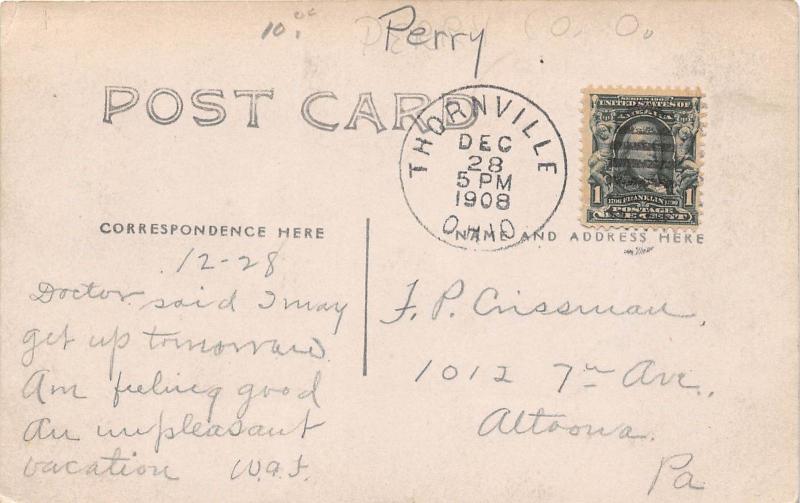 10.00
Perry
PERRY CO. O.
POST CARD
THORNVILLE
DEC
28
5 PM
1908
OHIO
SERIES 1902
UNITED STATES OF AMERICA
1 1
FRANKLIN
POSTAGE
ONE CENT
CORRESPONDENCE HERE
NAME AND ADDRESS HERE
12-28
Doctor said I may
get up tomorrow.
Am feeling good
An unpleasant
vacation W.A.F.
F. P. Crissman,
1012 7th Ave.,
Altoona.
Pa